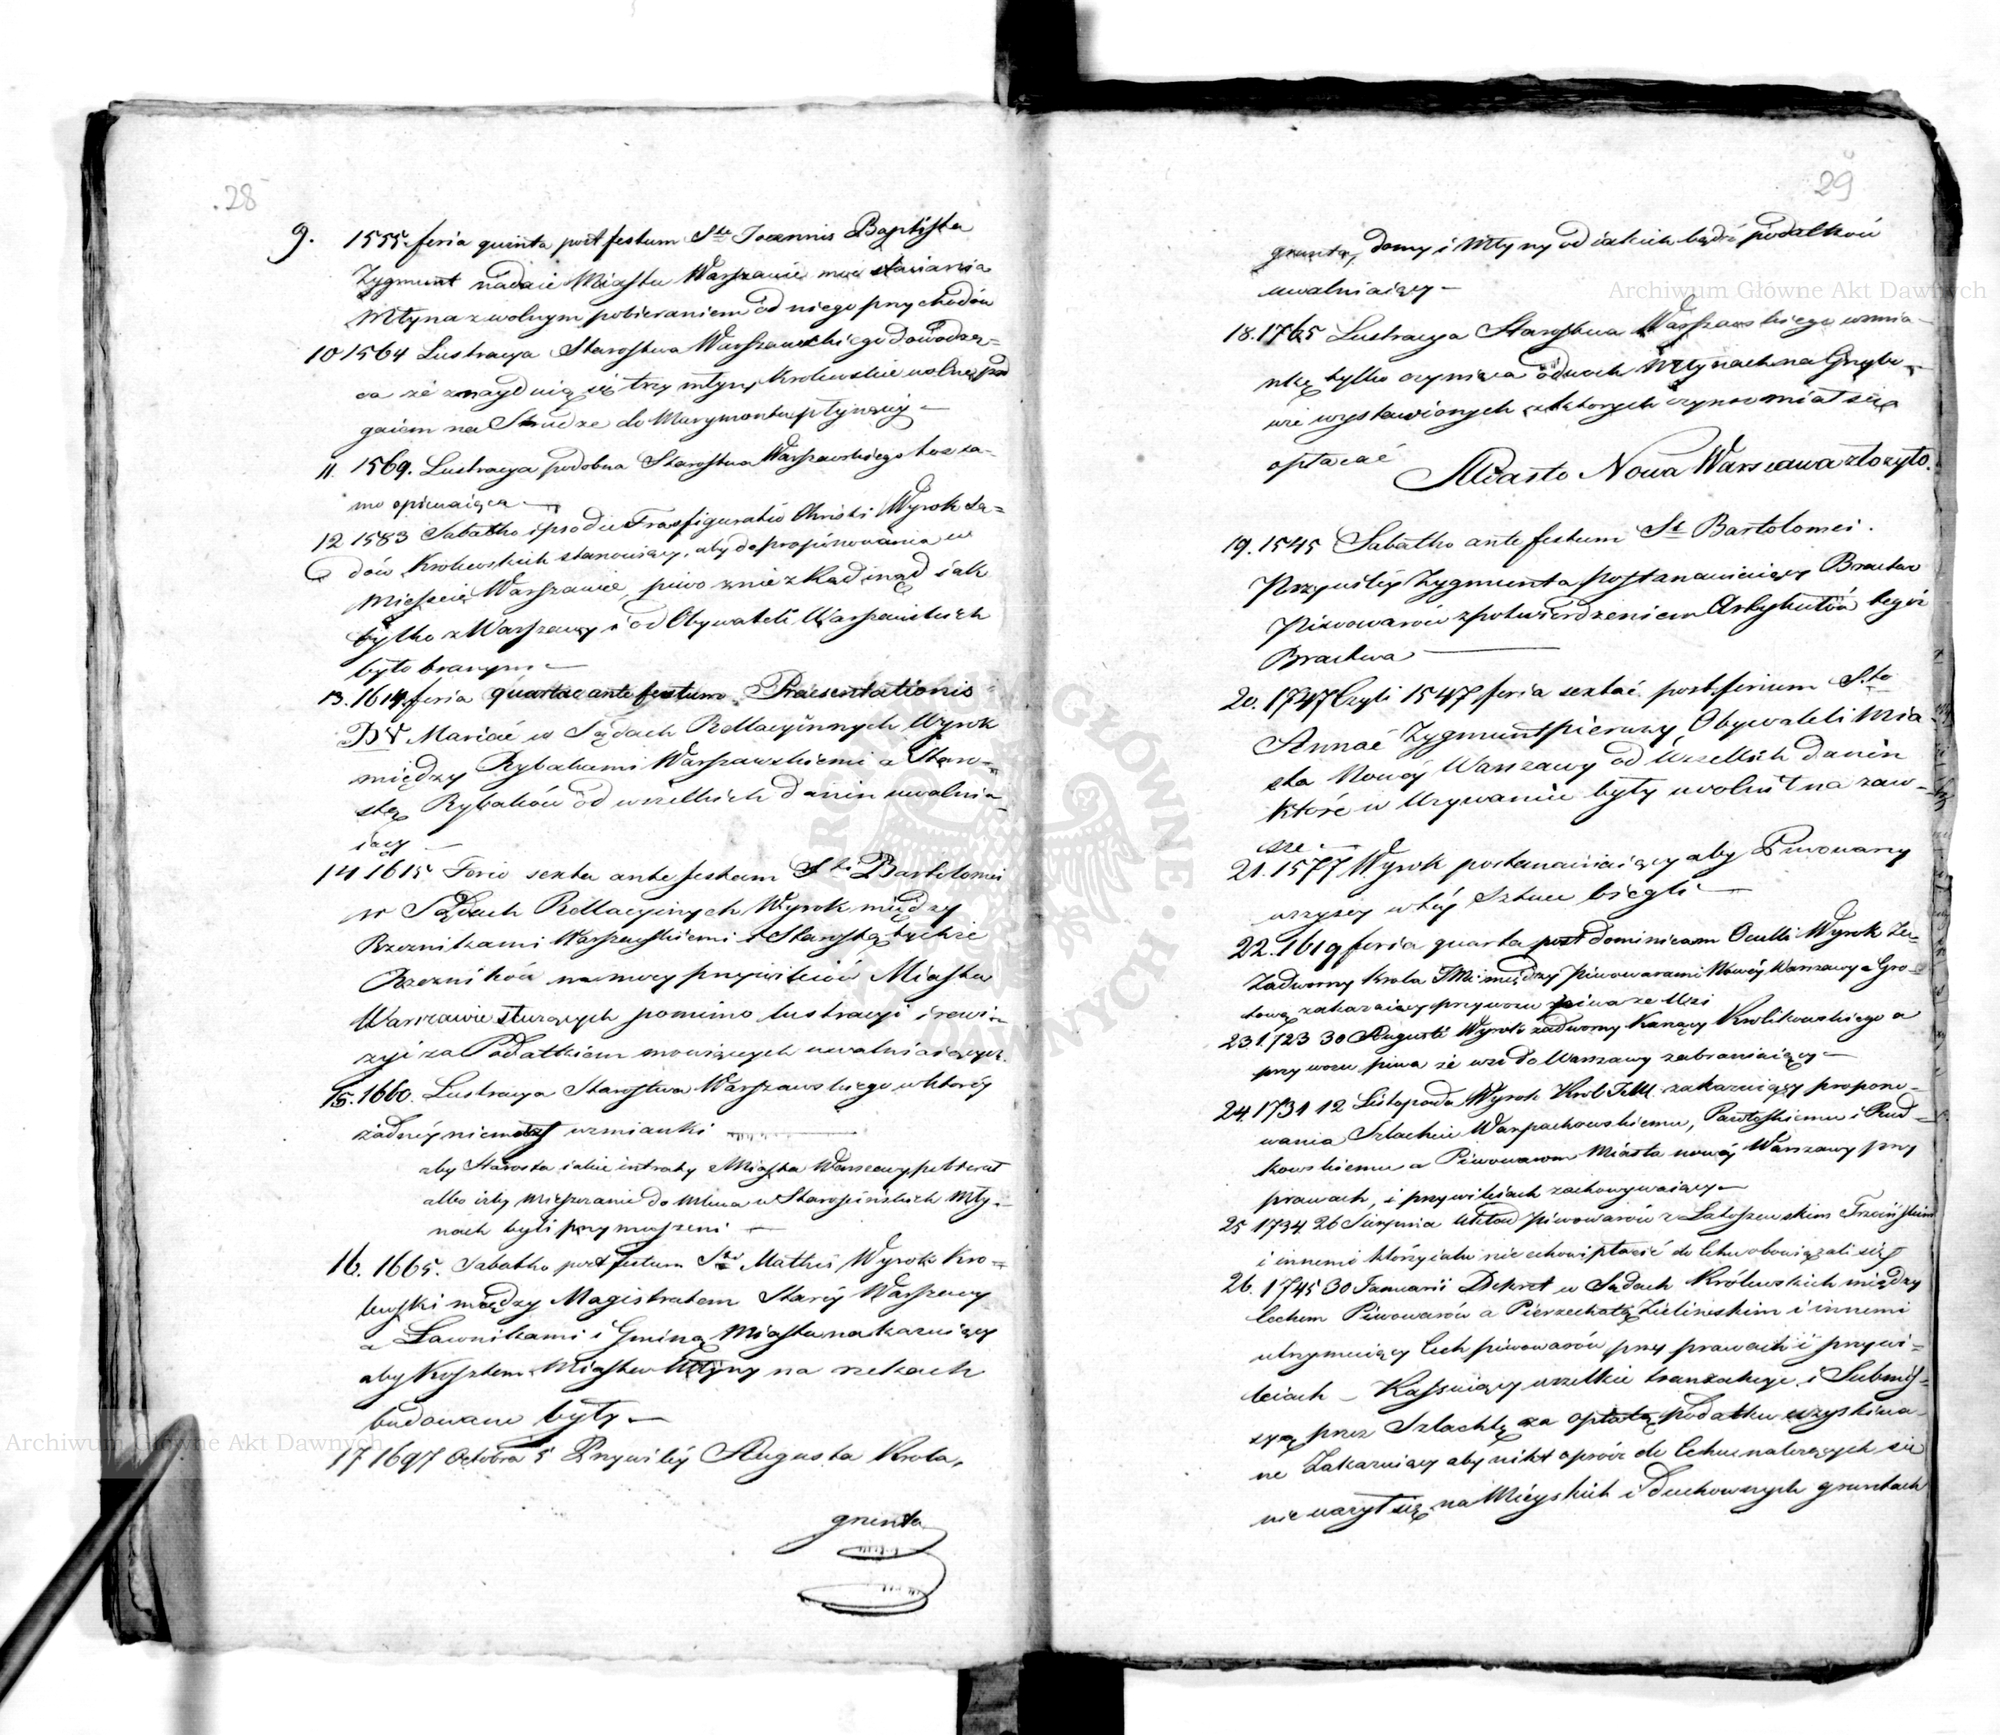 28
9. 1555. feria quinta post festum Ste Joannis Baptista
Zygmunt nadaie Miastu Warszawie moc stawiania
Młyna z wolnym pobieraniem od niego przychodów
10 1564 Lustracya Starostwa Warszawskiego dowodzą=
ca że znayduią się trzy młyny Krolewskie wolne pod
gaiem na Strudze do Marymontu płynącéy —
11. 1569. Lustracya podobna Starostwa Warszawskiego toż sa-
mo opiewaiąca —
12 1583 Sabatho ipso die Trasfiguratio Christi Wyrok Są=
dów Krolewskich stanowiący, aby do propinowania w
Mieście Warszawie, piwo z nie z kąd inąd iak
tylko z Warszawy i od Obywateli Warszawskich
było branym —
13. 1614 feria quartae ante festum Praesentationis
BV Mariae w Sądach Rellacyinnych Wyrok
między Rybakami Warszawskiemi a Staro-
stą Rybaków od wszelkich danin uwalnia-
iący —
14 1615 Feria sexta ante festum Sti Bartolomei
w Sądach Rellacyinych Wyrok między
Rzeznikami Warszawskiemi i Starostą tychże
Rzezników na mocy przywileiów Miastu
Warszawie słuzących pomimo lustracyi i rewi-
zyi za Podatkiem mowiących uwalniaiący.
15. 1660. Lustracya Starostwa Warszawskiego w którey
żadnéy niemasz wzmianki
aby Starosta iakie intraty z Miasta Warszawy pobierał
albo iżby Mieszczanie do Mlewa w Starościńskich Mły-
nach byli przymuszeni —
16. 1665. Sabatho post festum Sti Mathei Wyrok Kro=
lewski między Magistratem Staréy Warszawy
a Ławnikami i Gminą Miasta nakazuiący
aby Kosztem Miasta Młyny na rzekach
budowane były —
17 1697 Octobra 5 Przywiléy Augusta Krola,
grunta
29
grunta, domy i Młyny od iakich bądź podatków
uwalniaiący —
18. 1765 Lustracya Starostwa Warszawskiego wzmia-
nkę tylko czyniąca o dwóch Młynach na Grzybo-
wie wystawionych z których czynsz miał się
opłacać
Miasto Nowa Warszawa złożyło.
19. 1545 Sabatho ante festum St Bartolomei.
Przywiléy Zygmunta postanawiaiący Bractwo
Piwowarów z potwierdzeniem Artykułów tegoż
Bractwa —
20. 1747 Czyli 1547 feria sextae post ferium Sto
Annae Zygmunt pierwszy Obywateli Mia-
sta Nowéy Warszawy od wszelkich danin
które w Używaniu były uwolnił na zaw-
sze —
21. 1577 Wyrok postanawiaiący aby Piwowary
wszyscy w téy Sztuce biegli —
22. 1619 feria quarta post dominicam Oculi Wyrok Za-
Zadworny Krola JMci między Piwowarami Nowéy Warszawy a Gro-
tową zakazuiący przywozu piwa ze Wsi
23. 1723 30 Augusti Wyrok zadworny Kanący Krolikowskiego a
przywozu piwa ze wsi do Warszawy zabraniaiący —
24. 1731 12 Listopada Wyrok Krol JMci zakazuiący propono-
wania Szlachcie Warpachowskiemu, Pawłoskiemu i Rud-
kowskiemu a Piwowarom Miasta nowéy Warszawy przy
prawach, i przywileiach zachowywaiący —
25 1734 26 Sierpnia Układ Piwowarów z Latoszewskim Trzcińskim
i innemi którzy iako nie cechowi płacić do Cechu obowiązali się
26. 1745 30 Januarii Dekret w Sądach Królewskich między
Cechem Piwowarów a Pierzchałą Zielinskim i innemi
utrzymuiący Cech piwowarów przy prawach i przywi=
leiach — Kassuiący wszelkie tranzakcye i Submis=
syą przez Szlachtę za opłatą podatku uzyskiwa-
ne Zakazuiący aby nikt oprócz do Cechu należących się
nie ważył się na Mieyskich i Duchownych gruntach